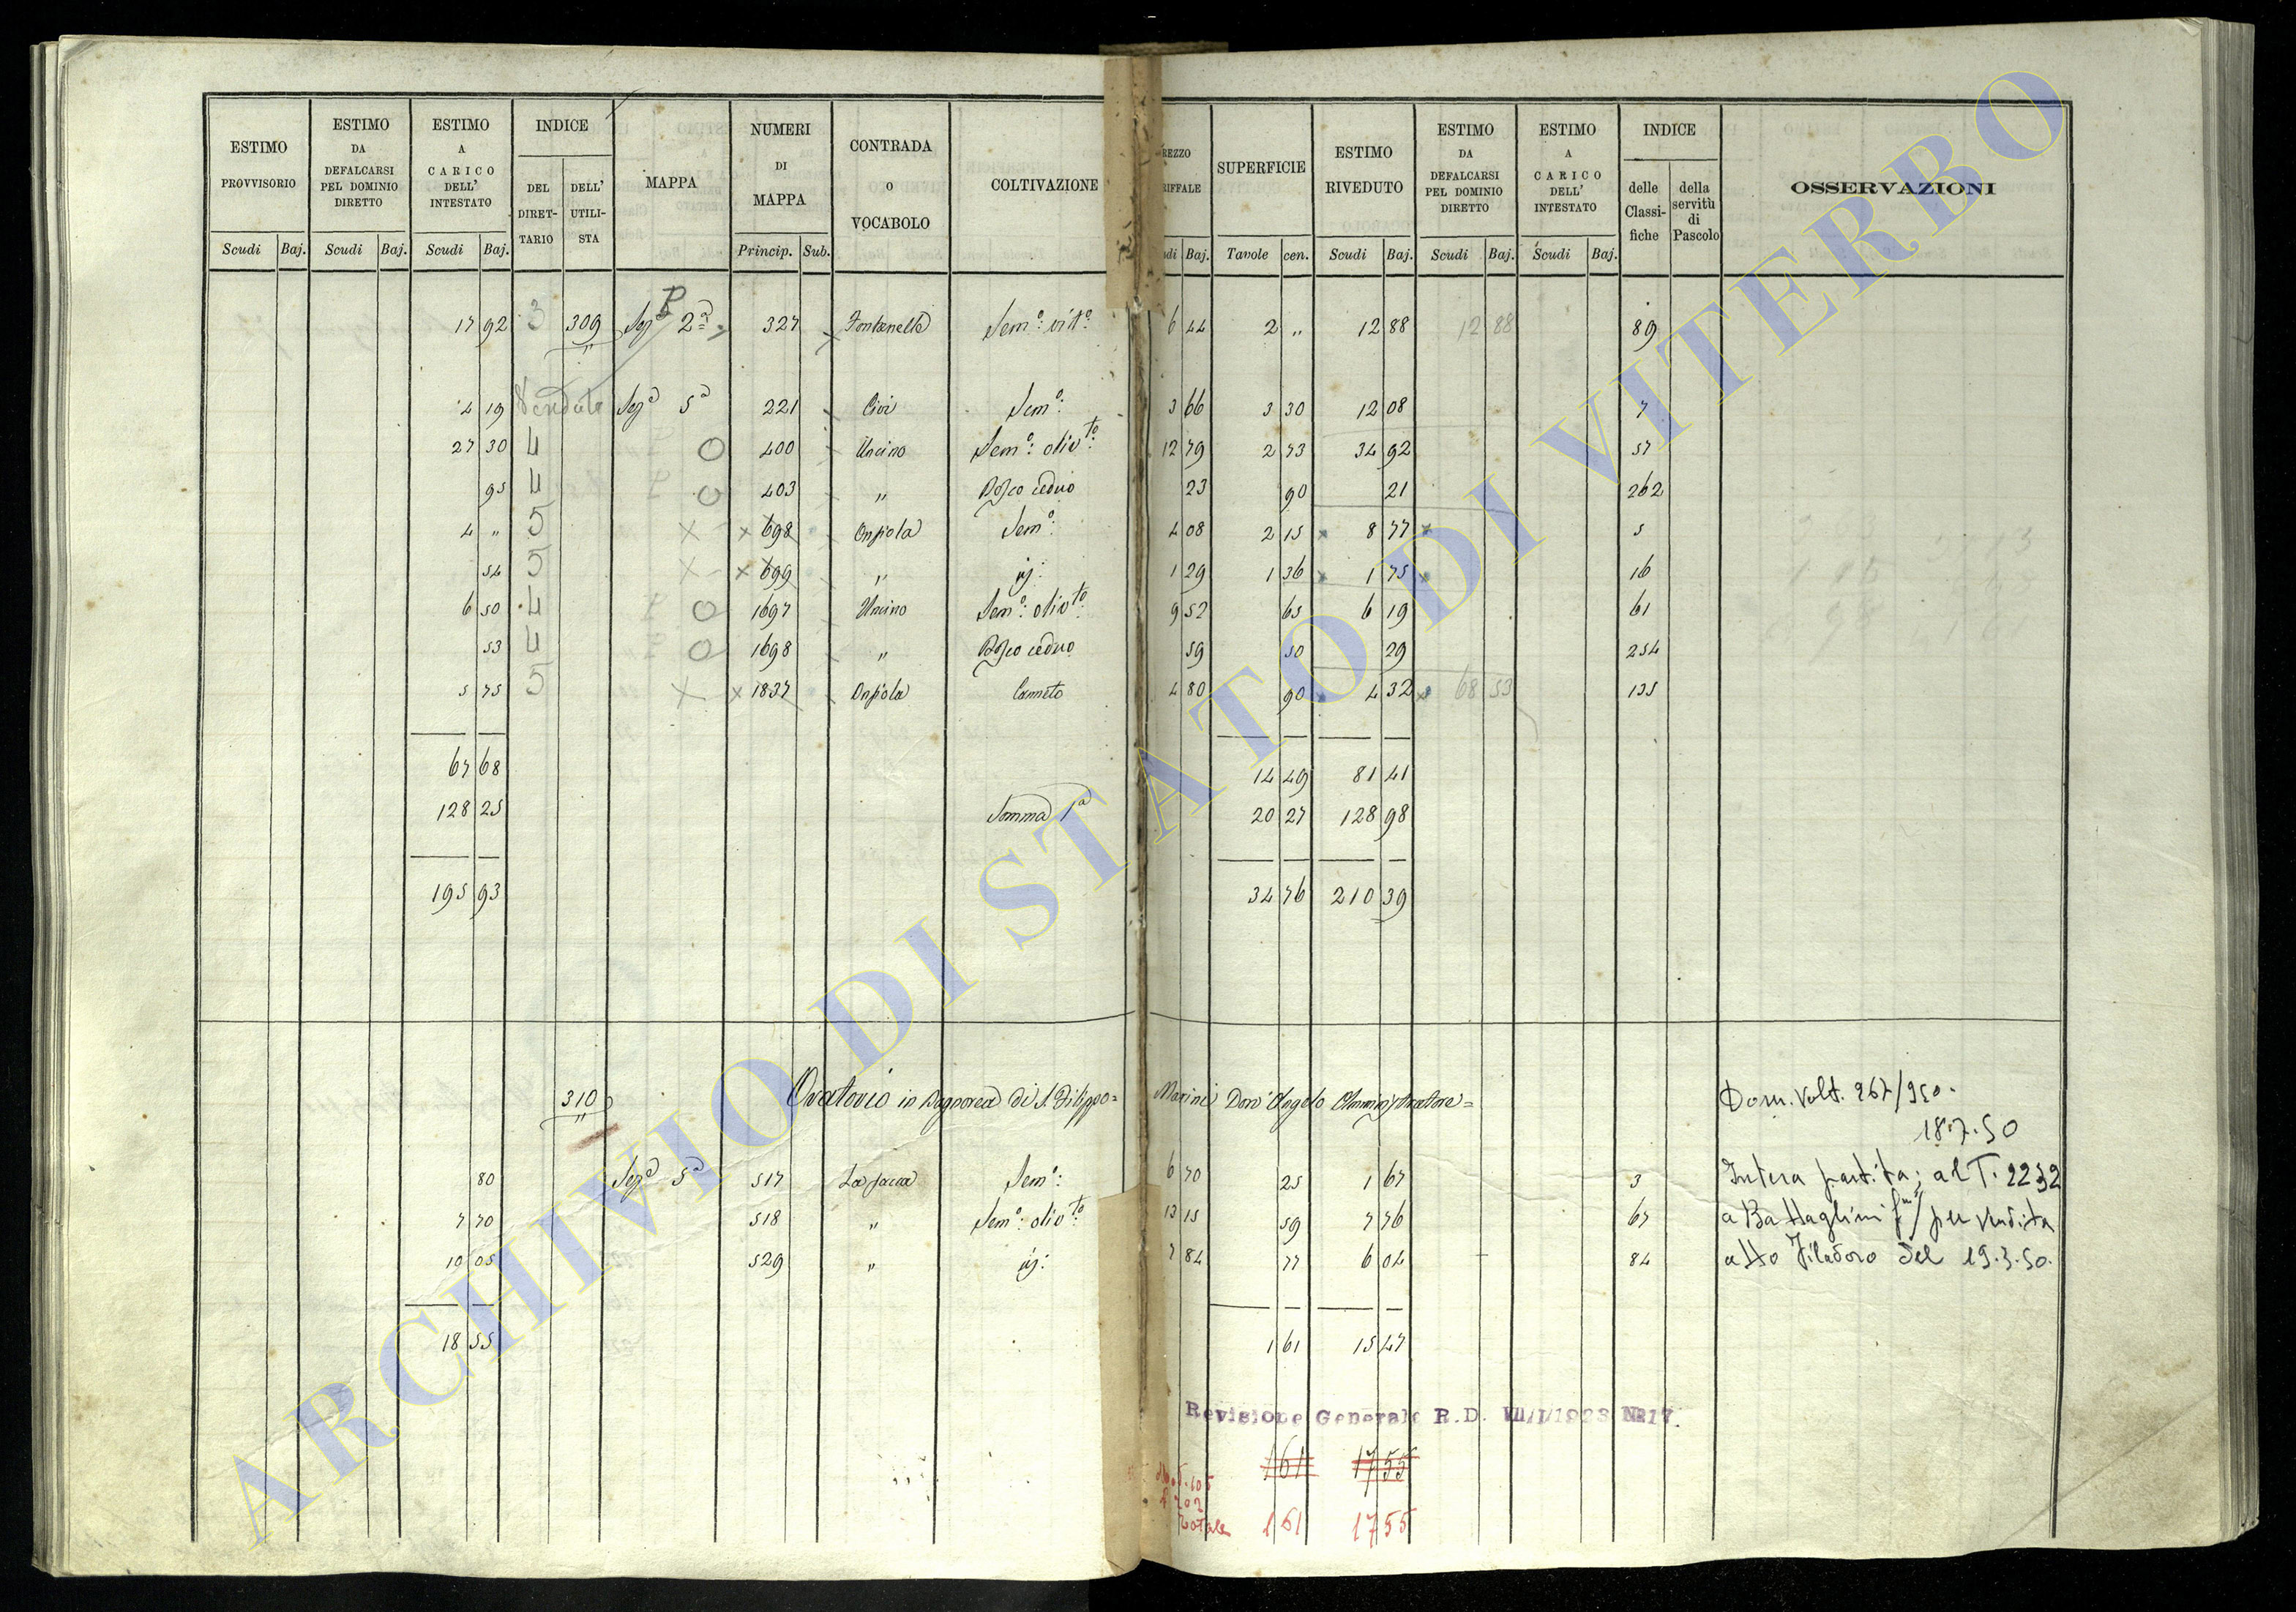 ESTIMO PROVVISORIO Scudi Baj. | ESTIMO DA DEFALCARSI PEL DOMINIO DIRETTO Scudi Baj. | ESTIMO A CARICO DELL' INTESTATO Scudi Baj. | INDICE DEL DIRETTARIO DELL' UTILISTA | MAPPA | NUMERI DI MAPPA Princip. Sub. | CONTRADA O VOCABOLO | COLTIVAZIONE | SUPERFICIE Tavole cen. | ESTIMO RIVEDUTO Scudi Baj. | ESTIMO DA DEFALCARSI PEL DOMINIO DIRETTO Scudi Baj. | ESTIMO A CARICO DELL' INTESTATO Scudi Baj. | INDICE delle Classifiche della servitù di Pascolo | OSSERVAZIONI
17 92 3 309 Sez.a 2a 327 Fontanelle Sem.o vit.o 6 44 2 " 12 88 12 88 89
4 19 Venduta Sez.a 5a 221 Sem.o 3 66 3 30 12 08 7
27 30 4 O 400 Uncino Sem.o oliv.to 12 79 2 73 34 92 57
95 4 O 403 " Bosco ceduo 23 90 21 262
4 " 5 X x 698 Sem.o 4 08 2 15 x 8 77 x 5
54 5 X x 699 " 1 29 1 36 x 1 75 x 16
6 50 4 O 1697 Uncino Sem.o oliv.to 9 52 65 6 19 61
53 4 O 1698 " Bosco ceduo 59 50 29 254
5 75 5 X x 1837 Canneto 4 80 90 x 4 32 x 68 53 135
67 68 14 49 81 41
128 25 Somma 1a 20 27 128 98
195 93 34 76 210 39
310 Oratorio in Bagnorea di S. Filippo = Marini Don Angelo Amministratore =
Dom. Volt. 267/950.
18.7.50
80 Sez.a 5a 517 Sem.o 6 70 25 1 67 3 Intera partita; al T. 2232
7 70 518 " Sem.o oliv.to 13 15 59 7 76 67 a Battaglini per vendita
10 05 529 " 7 84 77 6 04 84 atto Filadoro del 19.3.50.
18 55 1 61 15 47
Revisione Generale R.D. VII/I/1923 N° 17
161 17 55
Totale 1 61 17 55
ARCHIVIO DI STATO DI VITERBO